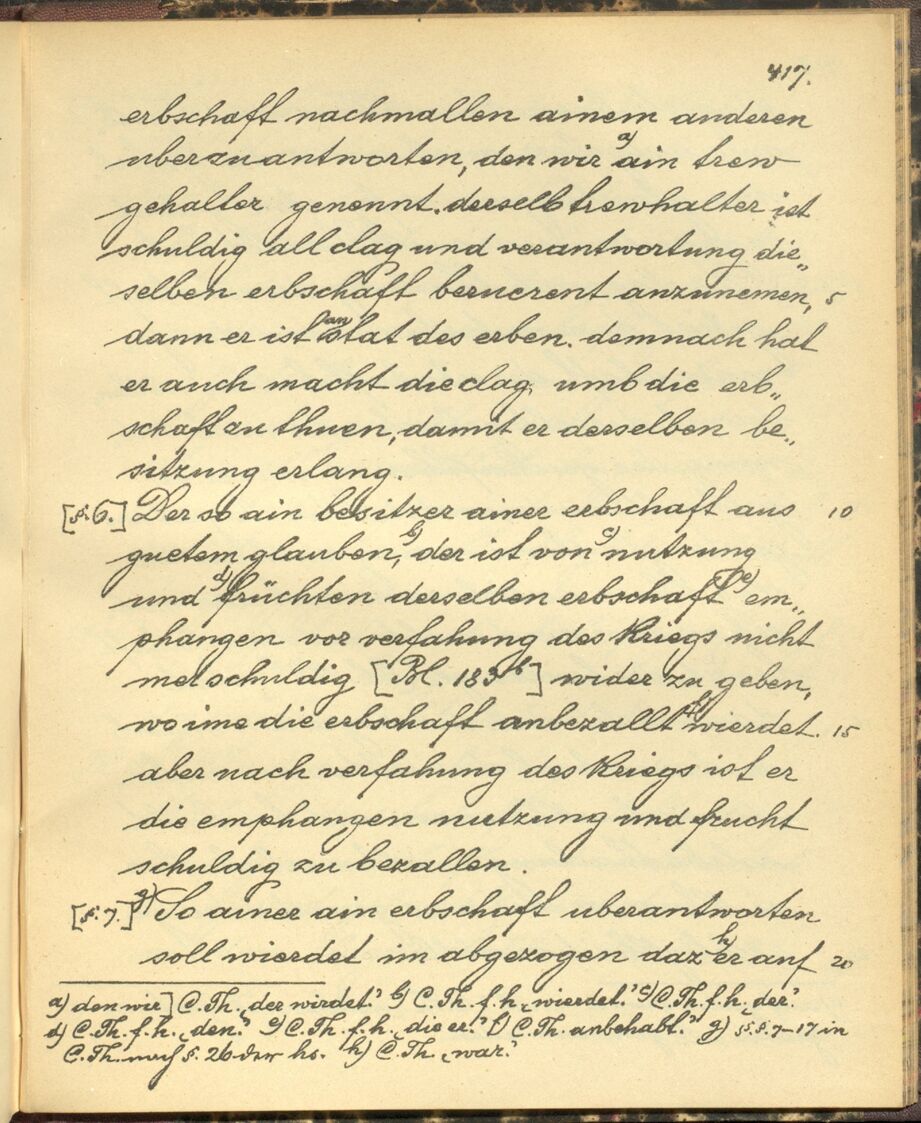 417.
erbschaft nachmallen ainem anderen
uberzuantworten, den wir a) ain trew
gehalter genennt. derselb trewhalter ist
schuldig all clag und verantwortung die„
selben erbschaft berurent anzunemen, 5
dann er ist an stat des erben. demnach hat
er auch macht die clag umb die erb„
schaft zu thuen, damit er derselben be„
sitzung erlang.
[§.6.] Der so ain besitzer ainer erbschaft aus 10
guetem glauben, b) der ist von c) nutzung
und d) früchten derselben erbschaft e) em„
phangen vor verfahung des Kriegs nicht
mer schuldig [Bl. 183b] wider zu geben,
wo ime die erbschaft anbezallt f) wierdet. 15
aber nach verfahung des Kriegs ist er
die emphangen nutzung und frucht
schuldig zu bezallen.
[§.7.] g) So ainer ain erbschaft uberantworten
soll wierdet im abgezogen daz h) er auf 20
a) den wir] C.Th. „der wirdet.“ b) C.Th. f. h. „wierdet.“ c) C.Th. f. h. „der.“
d) C.Th. f. h. „den.“ e) C.Th. f. h. „die er.“ f) C.Th. anbehabt.“ g) §.§. 7–17 in
C.Th. nach §. 26 der hs. h) C.Th. „war.“